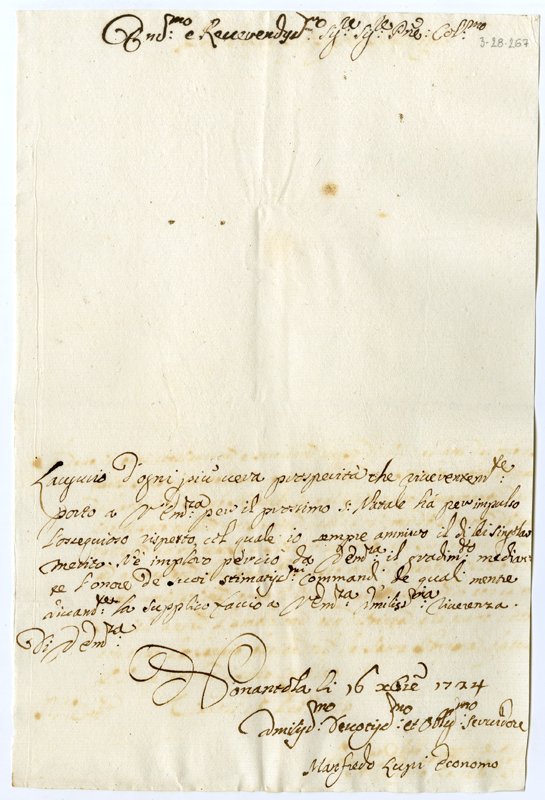 Em:mo e Reverendiss:mo Sig:re Sig:re Pne: Col:mo
3-28-267
L'augurio d'ogni più vera prosperità che riverentem:te
porto a V: Em:za per il prossimo S: Natale hà per impulso
l'ossequioso rispetto, col quale io sempre ammiro il di lei singolar
merito. Ne imploro perciò da V: Em:za il gradim:to median
te l'onore de suoi stimatiss:mi commandi, de quali mentre
vivam:te la supplico faccio a V: Em:za umiliss:ma riverenza.
Di V: Em:za
Nonantola li 16 Xbre 1724
Umiliss:mo Devotiss:mo et Obblig:mo Servidore
Manfredo Lupi Economo